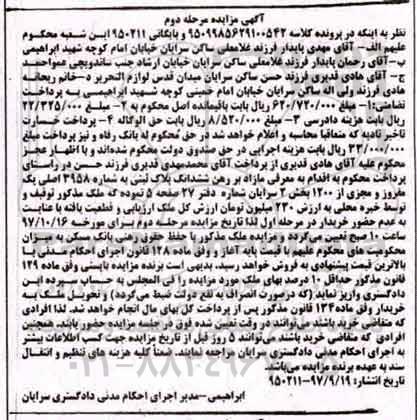 آگهی مزایده مرحله دوم
نظر به اینکه در پرونده کلاسه ۹۵۰۹۹۸۵۶۲۹۱۰۰۵۴۲ و بایگانی ۹۵۰۲۱۱ این شعبه محکوم
علیهم الف- آقای مهدی پایدار فرزند غلامعلی ساکن سرایان خیابان امام کوچه شهید ابراهیمی
ب- آقای رحمان پایدار فرزند غلامعلی ساکن سرایان خیابان ارشاد جنب ساندویچی عمواحمد
ج- آقای هادی قدیری فرزند حسن ساکن سرایان میدان قدس لوازم التحریر د-خانم ریحانه
هادی فرزند ولی اله ساکن سرایان خیابان امام خمینی کوچه شهید ابراهیمی به پرداخت
تضامنی:۱- مبلغ ۶۲۰/۷۲۰/۰۰۰ ریال بابت باقیمانده اصل محکوم به ۲- مبلغ ۲۲/۳۲۵/۰۰۰
ریال بابت هزینه دادرسی ۳- مبلغ ۸/۵۲۰/۰۰۰ ریال بابت حق الوکاله ۴- پرداخت خسارت
تاخیر تادیه که متعاقبا محاسبه و اعلام خواهد شد در حق محکوم له بانک رفاه و نیز پرداخت مبلغ
۳۳/۰۰۰/۰۰۰ ریال بابت هزینه اجرایی در حق صندوق دولت محکوم شده‌اند و با اظهار عجز
محکوم علیه آقای هادی قدیری از پرداخت آقای محمدمهدی قدیری فرزند حسن در راستای
پرداخت محکوم به اقدام به معرفی مازاد بر رهن ششدانگ پلاک ثبتی به شماره ۳۹۵۸ اصلی یک
مفروز و مجزی از ۱۲۰۰ بخش ۲ سرایان شماره دفتر ۲۷ صفحه ۵ نموده که ملک مذکور توقیف و
توسط خبره محلی به ارزش ۲۳۰ میلیون تومان ارزش کل ملک ارزیابی و قطعیت یافته با عنایت
به عدم حضور خریدار در مرحله اول لذا تاریخ مزایده مرحله دوم برای مورخه ۹۷/۱۰/۱۶
ساعت ۱۰ صبح تعیین می‌گردد و مزایده ملک مذکور با حفظ حقوق رهنی بانک مسکن به میزان
محکومیت های محکوم علیهم با قیمت پایه آغاز و وفق ماده ۱۲۸ قانون اجرای احکام مدنی با
بالاترین قیمت پیشنهادی به فروش خواهد رسید. بدیهی است برنده مزایده بایستی وفق ماده ۱۲۹
قانون مذکور حداقل ۱۰ درصد بهای ملک مورد مزایده را فی المجلس به حساب سپرده این
دادگستری واریز نماید (که درصورت انصراف به نفع دولت ضبط می‌گردد) و تحویل ملک به
خریدار وفق ماده۱۳۴ قانون مذکور پس از پرداخت کل بهای مال انجام خواهد شد. لذا افرادی
که متقاضی خرید باشند می‌توانند در وقت تعیین شده فوق در جلسه مزایده حضور یابند. همچنین
افرادی که متقاضی خرید باشند می‌توانند ۵ روز قبل از تاریخ مزایده جهت کسب اطلاعات بیشتر
به اجرای احکام مدنی دادگستری سرایان مراجعه نمایند. ضمناً کلیه هزینه های تنظیم و انتقال
سند به عهده برنده مزایده می‌باشد.
تاریخ انتشار: ۹۷/۹/۱۹-۹۵۰۲۱۱
ابراهیمی-مدیر اجرای احکام مدنی دادگستری سرایان